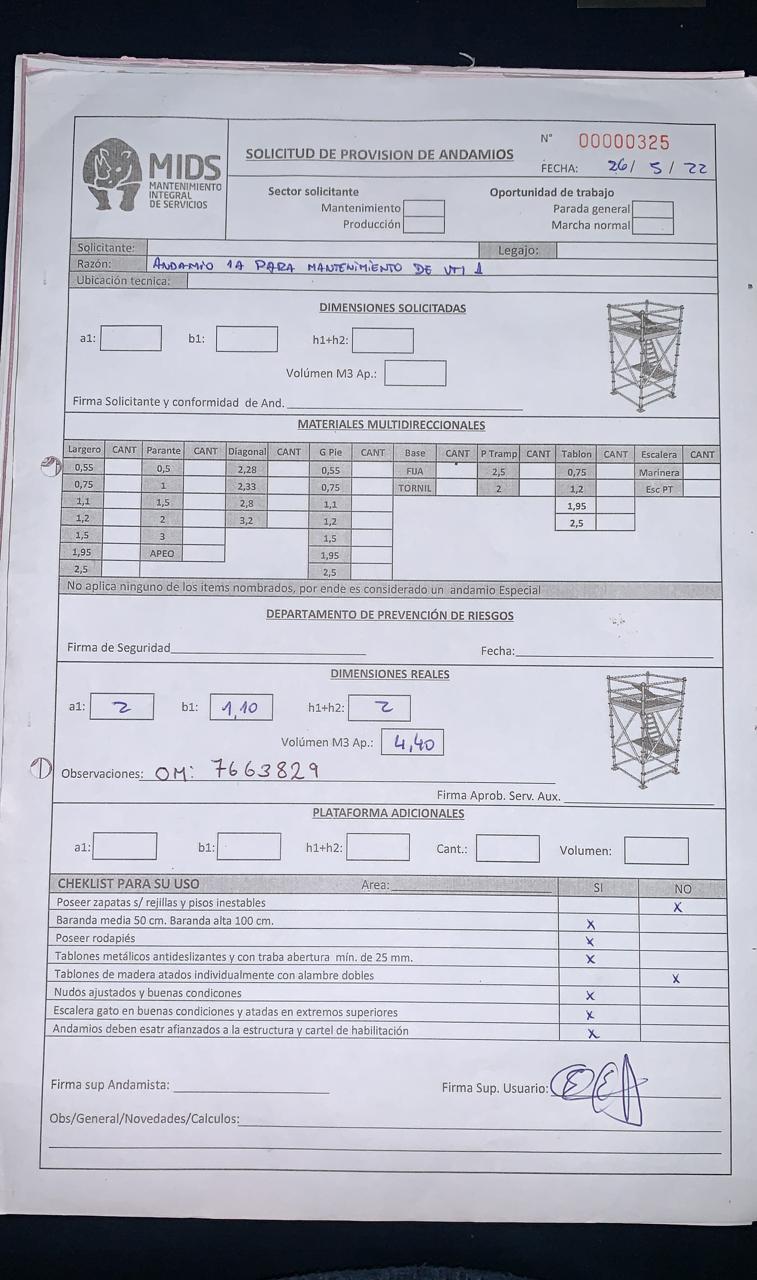 MIDS
MANTENIMIENTO
INTEGRAL
DE SERVICIOS
SOLICITUD DE PROVISION DE ANDAMIOS
N° 00000325
FECHA: 26/ 5 / 22
Sector solicitante
Mantenimiento
Producción
Oportunidad de trabajo
Parada general
Marcha normal
Solicitante: Legajo:
Razón: ANDAMIO 1A PARA MANTENIMIENTO DE VTI 1
Ubicación tecnica:
DIMENSIONES SOLICITADAS
a1: b1: h1+h2:
Volúmen M3 Ap.:
Firma Solicitante y conformidad de And.
MATERIALES MULTIDIRECCIONALES
Largero CANT Parante CANT Diagonal CANT G Pie CANT Base CANT P Tramp CANT Tablon CANT Escalera CANT
0,55 0,5 2,28 0,55 FIJA 2,5 0,75 Marinera
0,75 1 2,33 0,75 TORNIL 2 1,2 Esc PT
1,1 1,5 2,8 1,1 1,95
1,2 2 3,2 1,2 2,5
1,5 3 1,5
1,95 APEO 1,95
2,5 2,5
No aplica ninguno de los items nombrados, por ende es considerado un andamio Especial
DEPARTAMENTO DE PREVENCIÓN DE RIESGOS
Firma de Seguridad Fecha:
DIMENSIONES REALES
a1: 2 b1: 1,10 h1+h2: 2
Volúmen M3 Ap.: 4,40
Observaciones: OM: 7663829
Firma Aprob. Serv. Aux.
PLATAFORMA ADICIONALES
a1: b1: h1+h2: Cant.: Volumen:
CHEKLIST PARA SU USO Area: SI NO
Poseer zapatas s/ rejillas y pisos inestables X
Baranda media 50 cm. Baranda alta 100 cm. X
Poseer rodapiés X
Tablones metálicos antideslizantes y con traba abertura mín. de 25 mm. X
Tablones de madera atados individualmente con alambre dobles X
Nudos ajustados y buenas condicones X
Escalera gato en buenas condiciones y atadas en extremos superiores X
Andamios deben esatr afianzados a la estructura y cartel de habilitación X
Firma sup Andamista: Firma Sup. Usuario:
Obs/General/Novedades/Calculos: